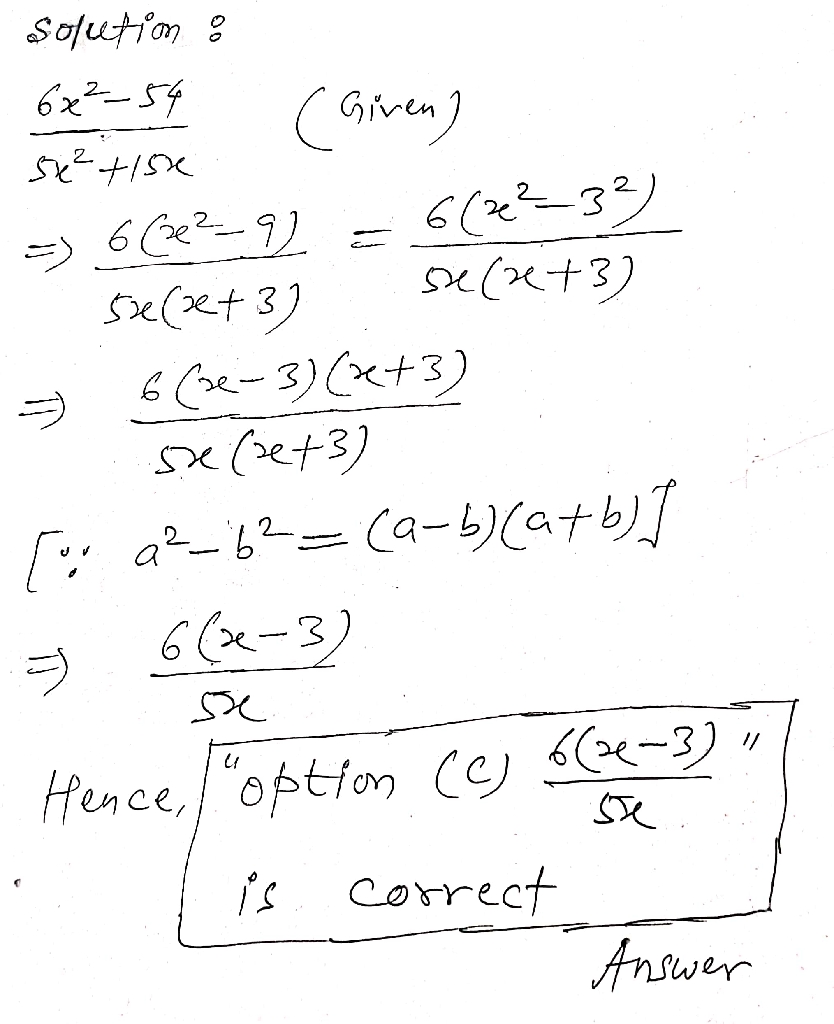 Solution :
6x² - 54 / 5x² + 15x (Given)
=> 6(x² - 9) / 5x(x+3) = 6(x² - 3²) / 5x(x+3)
=> 6(x-3)(x+3) / 5x(x+3)
[∵ a² - b² = (a-b)(a+b)]
=> 6(x-3) / 5x
Hence, "option (C) 6(x-3) / 5x"
is correct
Answer